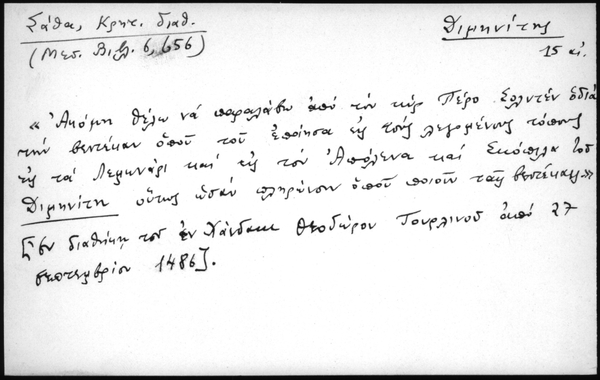 Σάθα, Κρητ. διαθ.
(Μεσ. Βιβλ. 6, 656)
Διμηνίτης
15 αἰ.
« Ἀκόμη θέλω νά παραλάβω ἀπό τόν κύρ Πέρο διά
τήν βεντέκαν ὁποῦ τοῦ ἐποίησα εἰς τούς λεγομένους τόπους
εἰς τά Λεμηνάρι καί εἰς τόν Ἀπόλενα καί Σκόπελα τοῦ
Διμηνίτη οὕτως ὡσάν πληρώνουν ὁποῦ ποιοῦν ταῖς βεντέκαις»
[Ἐν διαθήκῃ τοῦ ἐν Χάνδακι Θεοδώρου Τουρλινοῦ ἀπό 27
σεπτεμβρίου 1486].